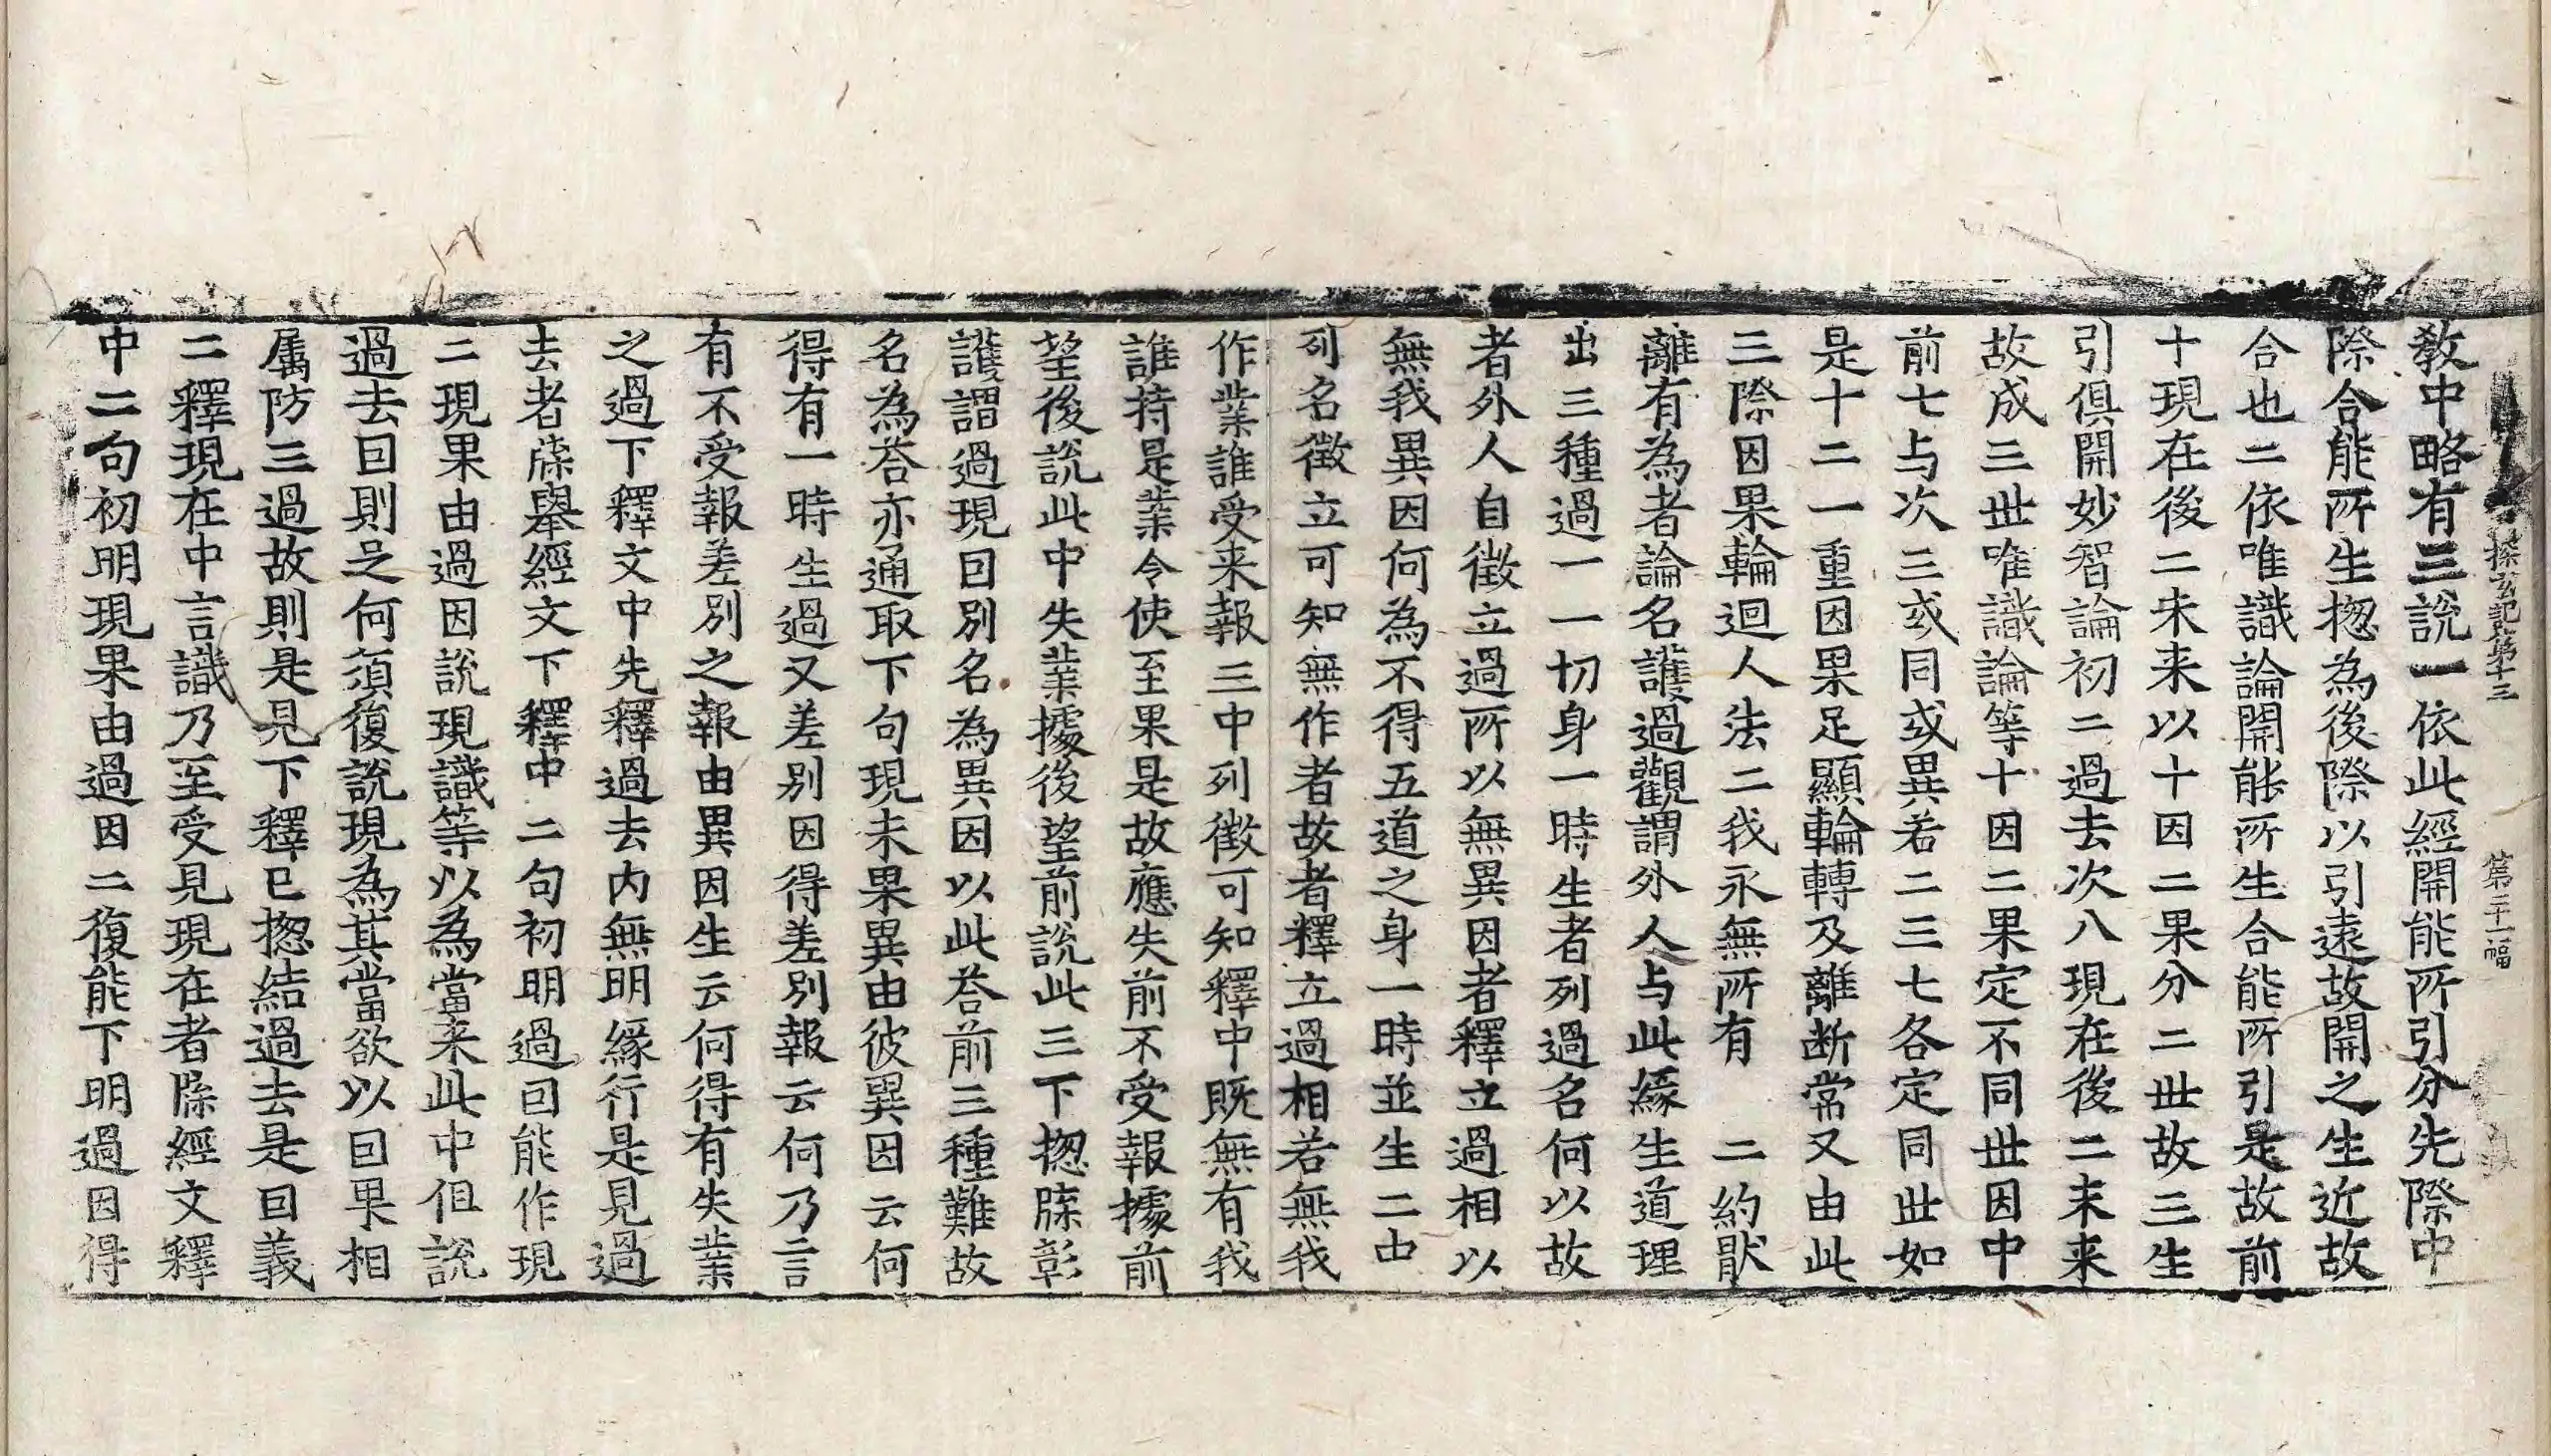 探玄記卷第十三 第二十一幅
教中略有三說一依此經開能所引分先際中
際合能所生揔為後際以引遠故開之生近故
合也二依唯識論開能所生合能所引是故前
十現在後二未来以十因二果分二世故三生
引俱開妙智論初二過去次八現在後二未来
故成三世唯識論等十因二果定不同世因中
前七与次三或同或異若二三七各定同世如
是十二一重因果足顯輪轉及離断常又由此
三際因果輪迴人法二我永無所有　二約猒
離有為者論名護過觀謂外人与此緣生道理
出三種過一一切身一時生者列過名何以故
者外人自徵立過所以無異因者釋立過相以
無我異因何為不得五道之身一時並生二中
列名徵立可知無作者故者釋立過相若無我
作業誰受来報三中列徵可知釋中既無有我
誰持是業令使至果是故應失前不受報據前
望後說此中失業據後望前說此三下揔牒彰
護謂過現因別名為異因以此荅前三種難故
名為荅亦通取下句現未果異由彼異因云何
得有一時生過又差別因得差別報云何乃言
有不受報差別之報由異因生云何得有失業
之過下釋文中先釋過去內無明緣行是見過
去者牒舉經文下釋中二句初明過因能作現
二現果由過因說現識等以為當来此中但說
過去因則是何須復說現為其當欲以因果相
属防三過故則是見下釋已揔結過去是因義
二釋現在中言識乃至受見現在者牒經文釋
中二句初明現果由過因二復能下明過因得